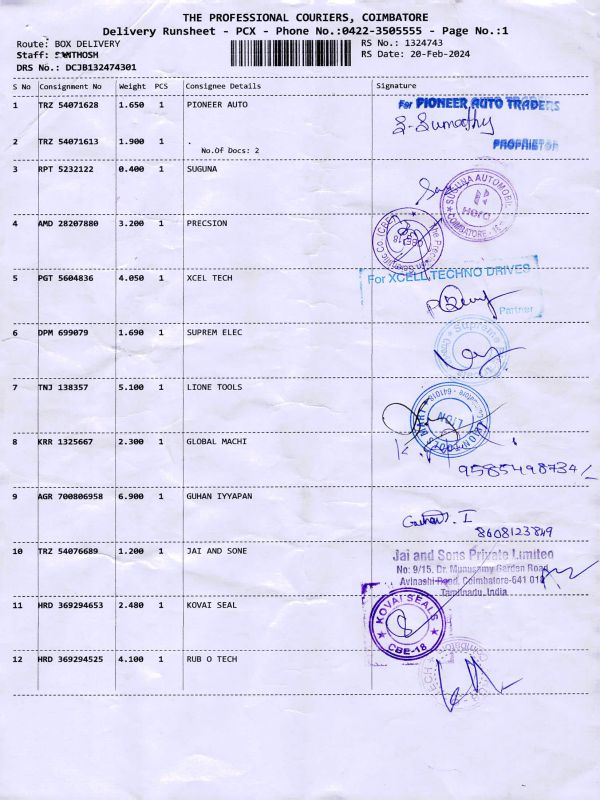 THE PROFESSIONAL COURIERS, COIMBATORE
Delivery Runsheet - PCX - Phone No.:0422-3505555 - Page No.:1
Route: BOX DELIVERY
RS No.: 1324743
Staff: SANTHOSH
RS Date: 20-Feb-2024
DRS No.: DCJB132474301
S No Consignment No Weight PCS Consignee Details Signature
1 TRZ 54071628 1.650 1 PIONEER AUTO
For PIONEER AUTO TRADERS
S. Sumathy
PROPRIETOR
2 TRZ 54071613 1.900 1 .
No.Of Docs: 2
3 RPT 5232122 0.400 1 SUGUNA
SUGUNA AUTOMOBIL
Hero
COIMBATORE - 18
4 AMD 28207880 3.200 1 PRECSION
The Precision Scientific Co (CBE)
CBE-18
5 PGT 5604836 4.050 1 XCEL TECH
For XCELL TECHNO DRIVES
Partner
6 DPM 699079 1.690 1 SUPREM ELEC
Supreme
7 TNJ 138357 5.100 1 LIONE TOOLS
LION TOOLS MART
LION
641018
8 KRR 1325667 2.300 1 GLOBAL MACHI
9585498734/-
9 AGR 700806958 6.900 1 GUHAN IYYAPAN
Guhan. I
8608123849
10 TRZ 54076689 1.200 1 JAI AND SONE
Jai and Sons Private Limited
No: 9/15, Dr. Munusamy Garden Road
Avinashi Road, Coimbatore-641 018
Tamilnadu, India
11 HRD 369294653 2.480 1 KOVAI SEAL
KOVAI SEALS
CBE-18
12 HRD 369294525 4.100 1 RUB O TECH